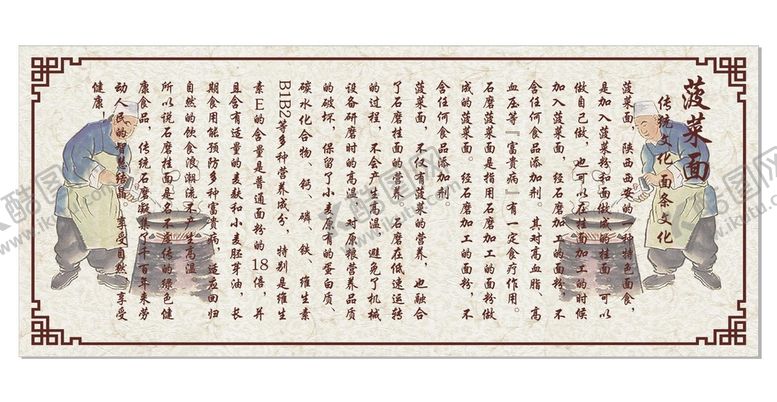 菠菜面
传统文化 面条文化
菠菜面，陕西西安的一种特色面食，
是加入菠菜粉和面做成的挂面，可以
做自己做，也可以在挂面加工的时候
加入菠菜面。经石磨加工的面粉，不
含任何食品添加剂。其对高血脂、高
血压等“富贵病”有一定食疗作用。
石磨菠菜面是指用石磨加工的面粉做
成的菠菜面。经石磨加工的面粉，不
含任何食品添加剂。
菠菜面，不仅有菠菜的营养，也融合
了石磨挂面的营养。石磨在低速运转
的过程，不会产生高温，避免了机械
设备研磨时的高温，对原粮营养品质
的破坏，保留了小麦原有的蛋白质、
碳水化合物、钙、磷、铁、维生素
B1B2等多种营养成分，特别是维生
素E的含量是普通面粉的18倍，并
且含有适量的麦麸和小麦胚芽油，长
期食用能预防多种富贵病，适应回归
自然的饮食浪潮流不产生高温
所以说石磨挂面是名不虚传的绿色健
康食品，传统石磨凝集了千百年来劳
动人民的智慧结晶，享受自然，享受
健康！